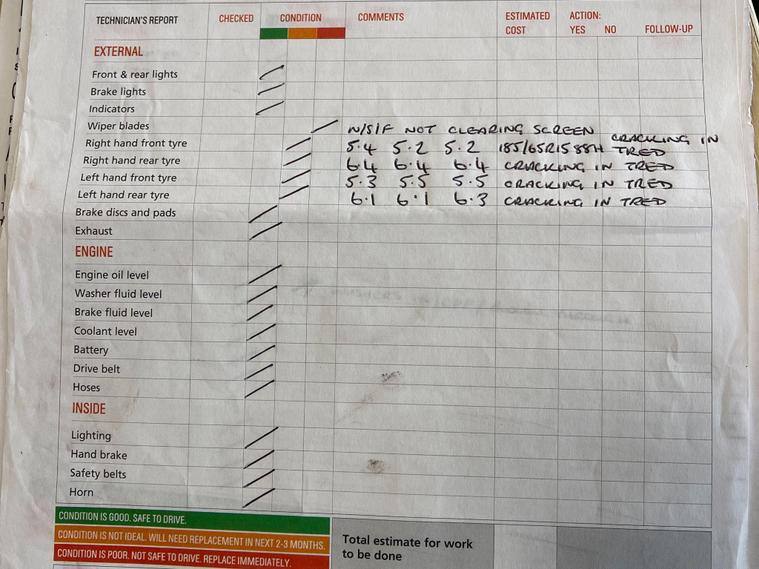 TECHNICIAN'S REPORT CHECKED CONDITION COMMENTS ESTIMATED COST ACTION: YES NO FOLLOW-UP
EXTERNAL
Front & rear lights
Brake lights
Indicators
Wiper blades N/S/F NOT CLEARING SCREEN
Right hand front tyre 5.4 5.2 5.2 185/65R15 88H CRACKING IN TRED
Right hand rear tyre 6.4 6.4 6.4 CRACKING IN TRED
Left hand front tyre 5.3 5.5 5.5 CRACKING IN TRED
Left hand rear tyre 6.1 6.1 6.3 CRACKING IN TRED
Brake discs and pads
Exhaust
ENGINE
Engine oil level
Washer fluid level
Brake fluid level
Coolant level
Battery
Drive belt
Hoses
INSIDE
Lighting
Hand brake
Safety belts
Horn
CONDITION IS GOOD. SAFE TO DRIVE.
CONDITION IS NOT IDEAL. WILL NEED REPLACEMENT IN NEXT 2-3 MONTHS.
CONDITION IS POOR. NOT SAFE TO DRIVE. REPLACE IMMEDIATELY.
Total estimate for work
to be done